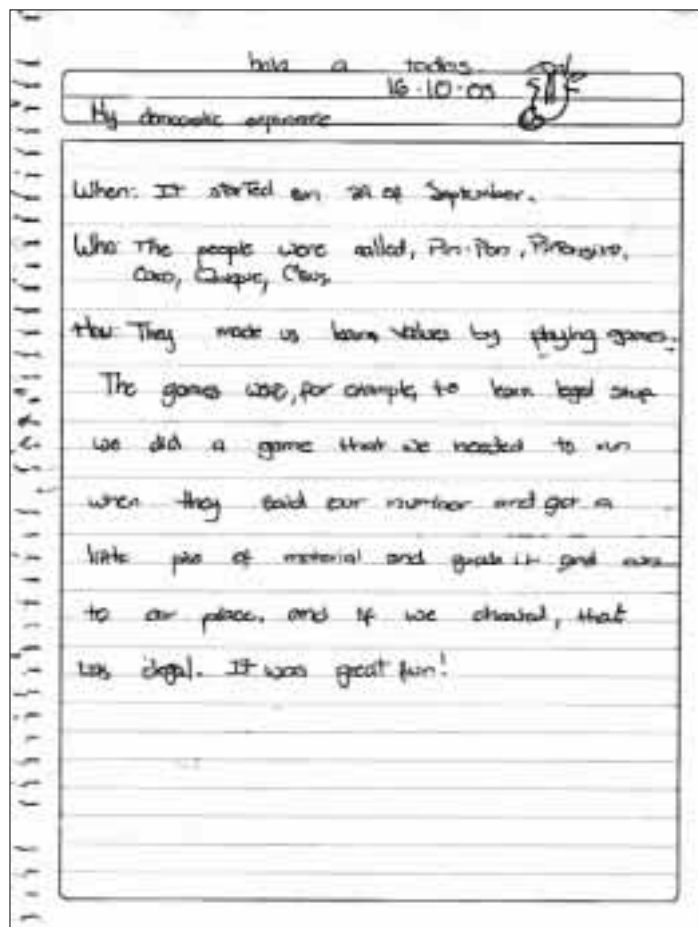 hola a todos.
16-10-03
My democratic experience
When: It started on 29 of September.
Who: The people were called, Pin-Pon,
Coco, Quique, Claus
How: They made us learn values by playing games.
The games were, for example, to learn legal
we did a game that we needed to run
when they said our number and get a
little of material and it and
to our place, and if we cheated, that
was ilegal. It was great fun!